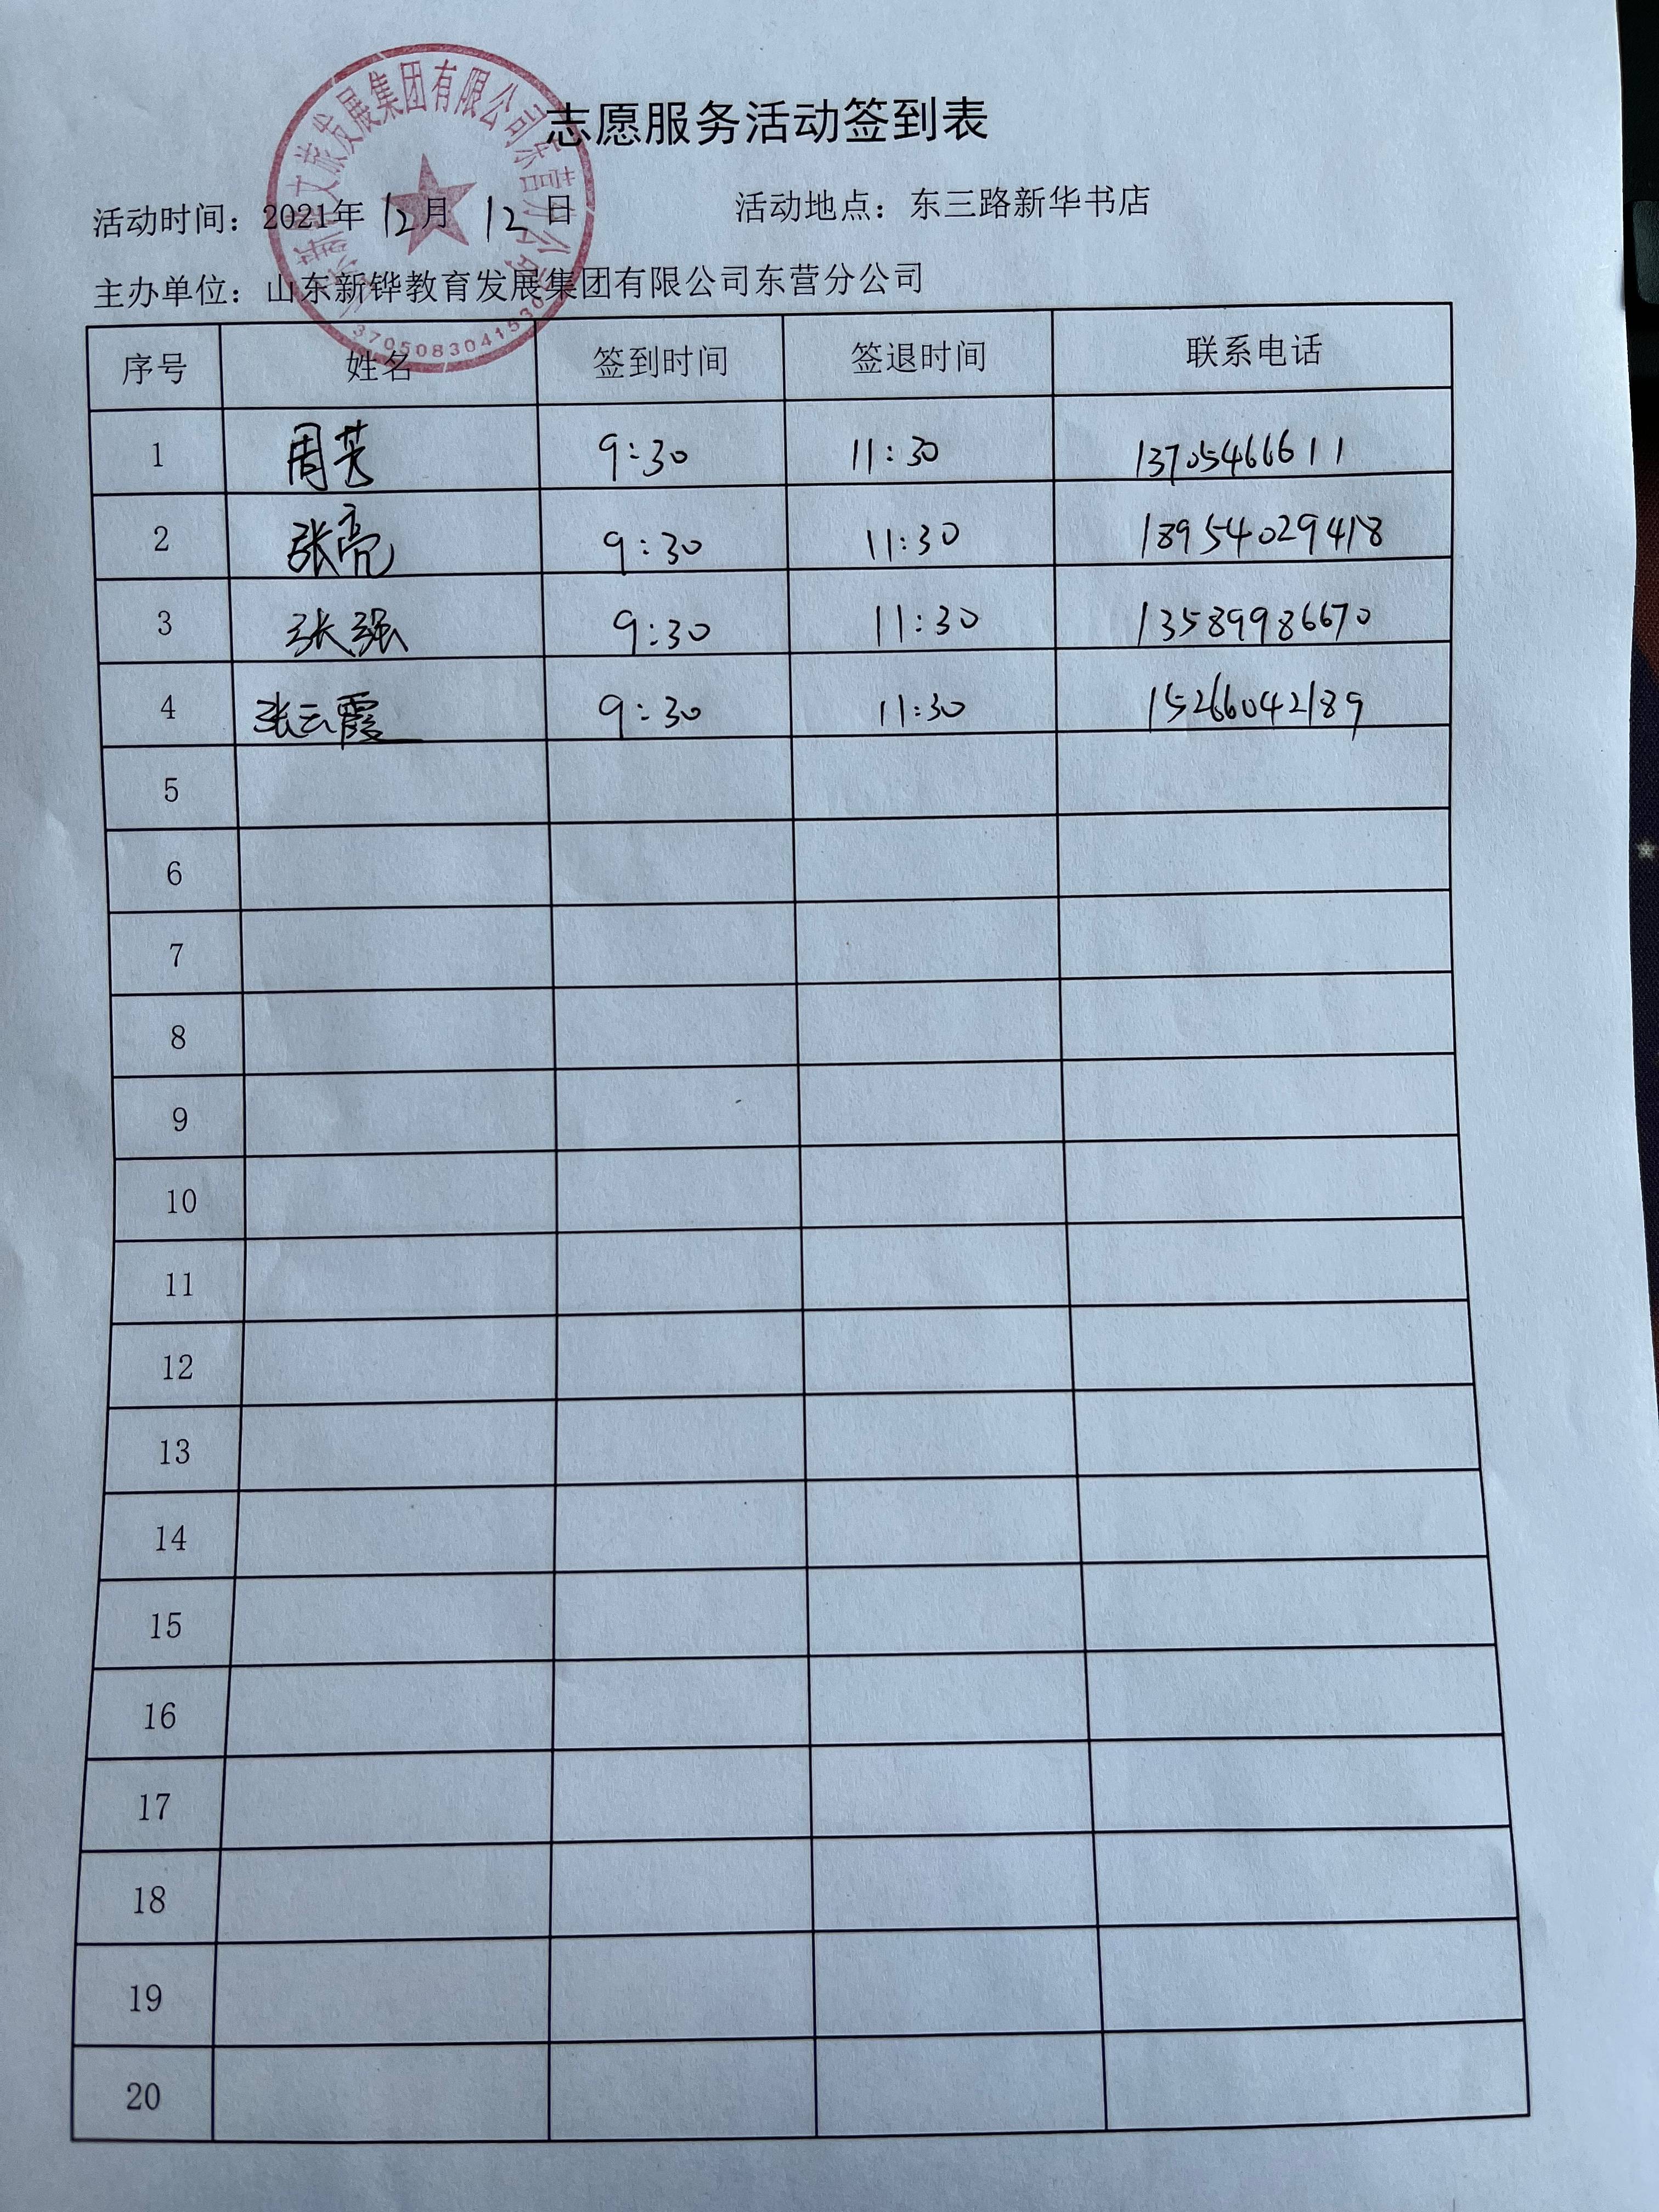 志愿服务活动签到表
活动时间：2021年 12 月 12 日 活动地点：东三路新华书店
主办单位：山东新铧教育发展集团有限公司东营分公司
文旅发展集团有限公司东营分公司
序号 姓名 签到时间 签退时间 联系电话
1 周芳 9:30 11:30 13705466611
2 张亮 9:30 11:30 18954029418
3 张强 9:30 11:30 13589986670
4 张云霞 9:30 11:30 15266042189
5
6
7
8
9
10
11
12
13
14
15
16
17
18
19
20